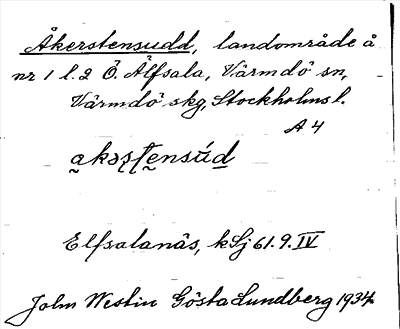 Åkerstensudd, landområde å
nr 1 l. 2 Ö. Älfsala, Värmdö sn,
Värmdö skg, Stockholms l.
A 4
a̱kəste̱nsúd
Elfsalanäs, kSj 61. 9. IV
John Westin Gösta Lundberg 1934